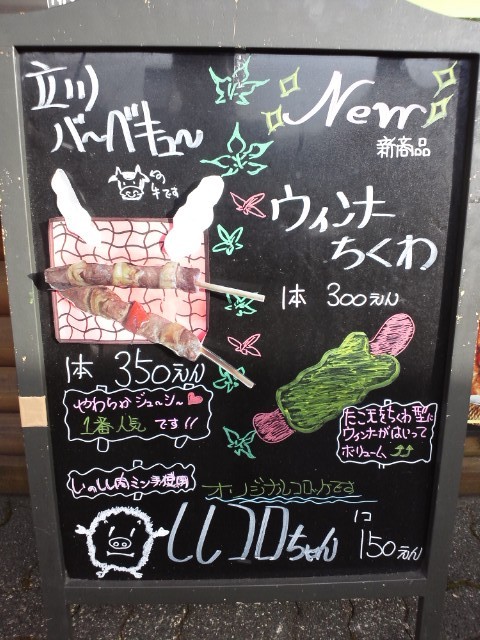 立川
バーベキュー
牛です
1本 350えん
やわらかジューシー
1番人気です!!
New
新商品
ウィンナー
ちくわ
1本 300えん
たこえもちくわ型に
ウィンナがはいって
ボリューム
いのしし肉ミンチ使用
オリジナルコロッケです
ししコロちゃん
1コ
150えん